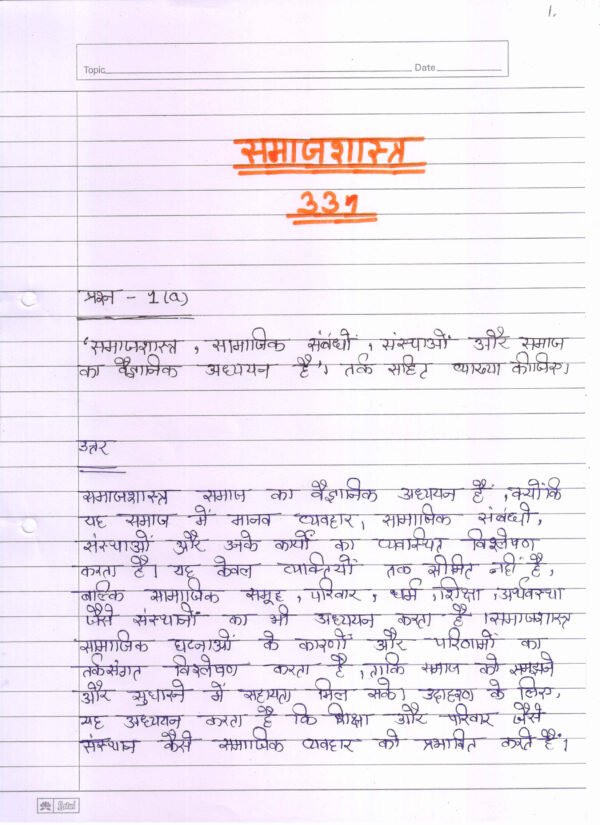 1.
Topic Date
समाजशास्त्र
331
प्रश्न - 1(a)
'समाजशास्त्र, सामाजिक संबंधों, संस्थाओं और समाज
का वैज्ञानिक अध्ययन है'। तर्क सहित व्याख्या कीजिए।
उत्तर
समाजशास्त्र समाज का वैज्ञानिक अध्ययन है, क्योंकि
यह समाज में मानव व्यवहार, सामाजिक संबंधों,
संस्थाओं और उनके कार्यों का व्यवस्थित विश्लेषण
करता है। यह केवल व्यक्तियों तक सीमित नहीं है,
बल्कि सामाजिक समूह, परिवार, धर्म, शिक्षा, अर्थवस्था
जैसे संस्थानों का भी अध्ययन करता है। समाजशास्त्र
सामाजिक घटनाओं के कारणों और परिणामों का
तर्कसंगत विश्लेषण करता है, ताकि समाज को समझने
और सुधारने में सहायता मिल सके। उदाहरण के लिए,
यह अध्ययन करता है कि शिक्षा और परिवार जैसे
संस्थान कैसे सामाजिक व्यवहार को प्रभावित करते हैं।